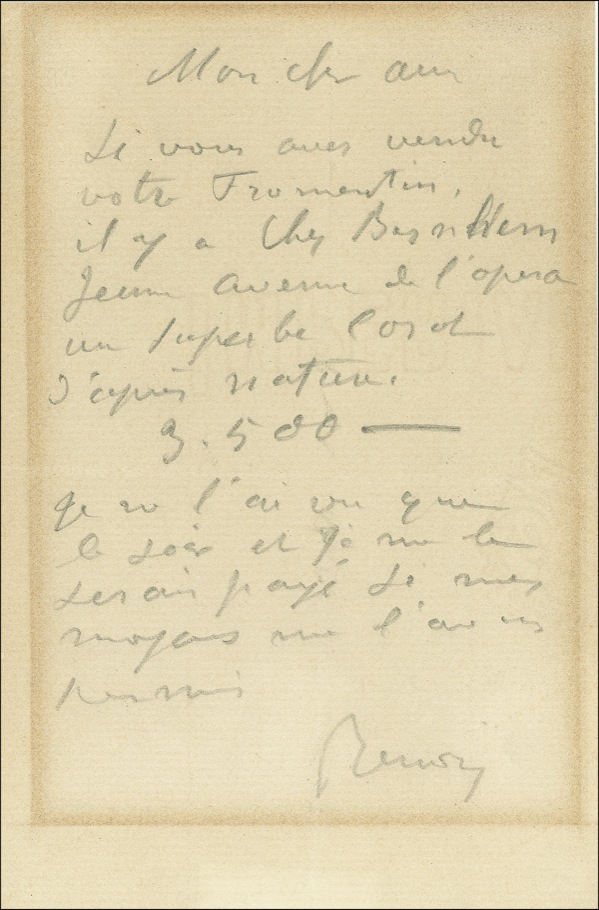 Mon cher ami
Si vous avez vendu
votre Fromentin,
il y a Chez Bernheim
Jeune avenue de l'opera
un superbe Corot
d'après nature.
3.500 —
Je ne l'ai vu que
le soir et je me le
serais payé si mes
moyens me l'avais
permis
Renoir